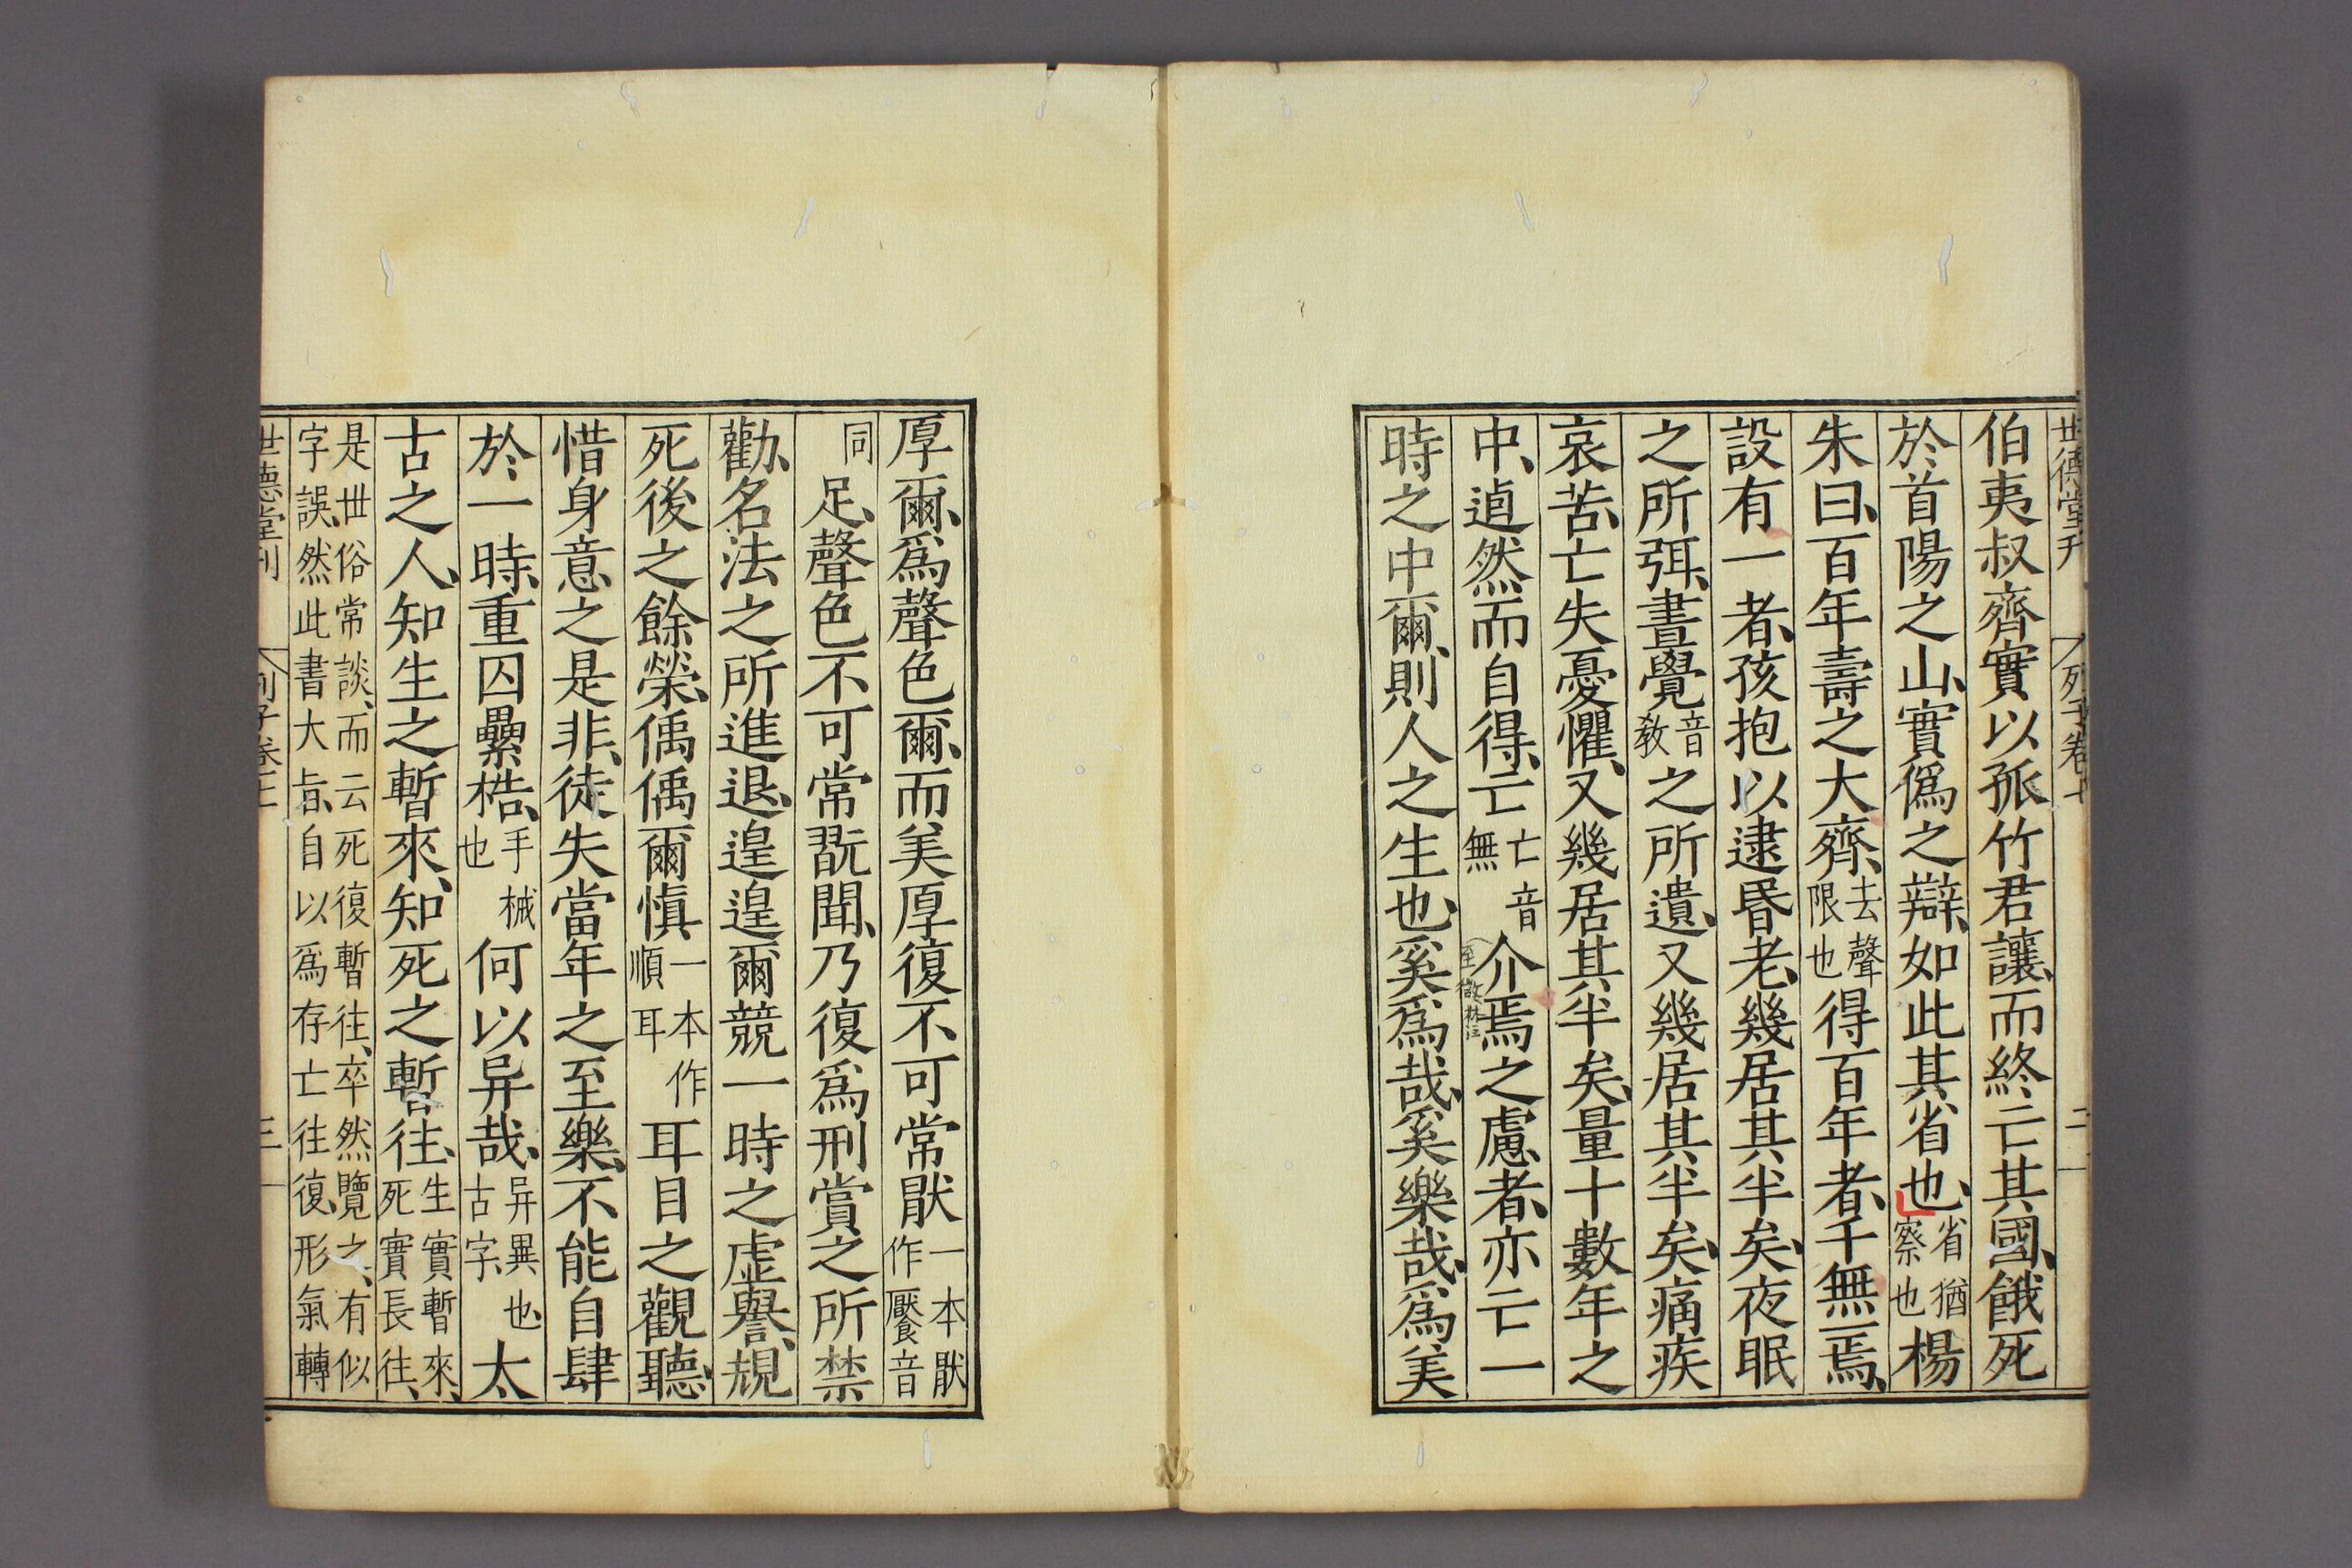 世德堂刋 列子卷七 二
伯夷叔齊實以孤竹君讓而終亡其國餓死
於首陽之山實僞之辯如此其省也省猶察也楊
朱曰百年壽之大齊去聲限也得百年者千無一焉
設有一者孩抱以逮昬老幾居其半矣夜眠
之所弭晝覺音教之所遺又幾居其半矣痛疾
哀苦亡失憂懼又幾居其半矣量十數年之
中逌然而自得亡亡音無介焉之慮者亦亡一
至微林注
時之中爾則人之生也奚爲哉奚樂哉爲美
厚爾爲聲色爾而美厚復不可常猒一本猒作饜音
同足聲色不可常翫聞乃復爲刑賞之所禁
勸名法之所進退遑遑爾競一時之虛譽規
死後之餘榮偊偊爾愼一本作順耳耳目之觀聽
惜身意之是非徒失當年之至樂不能自肆
於一時重囚纍梏手械也何以异哉异異也古字太
古之人知生之暫來知死之暫往生實暫來死實長往
是丗俗常談而云死復暫往卒然覽之有似
字誤然此書大㫖自以爲存亡往復形氣轉
世德堂刊 列子卷 三